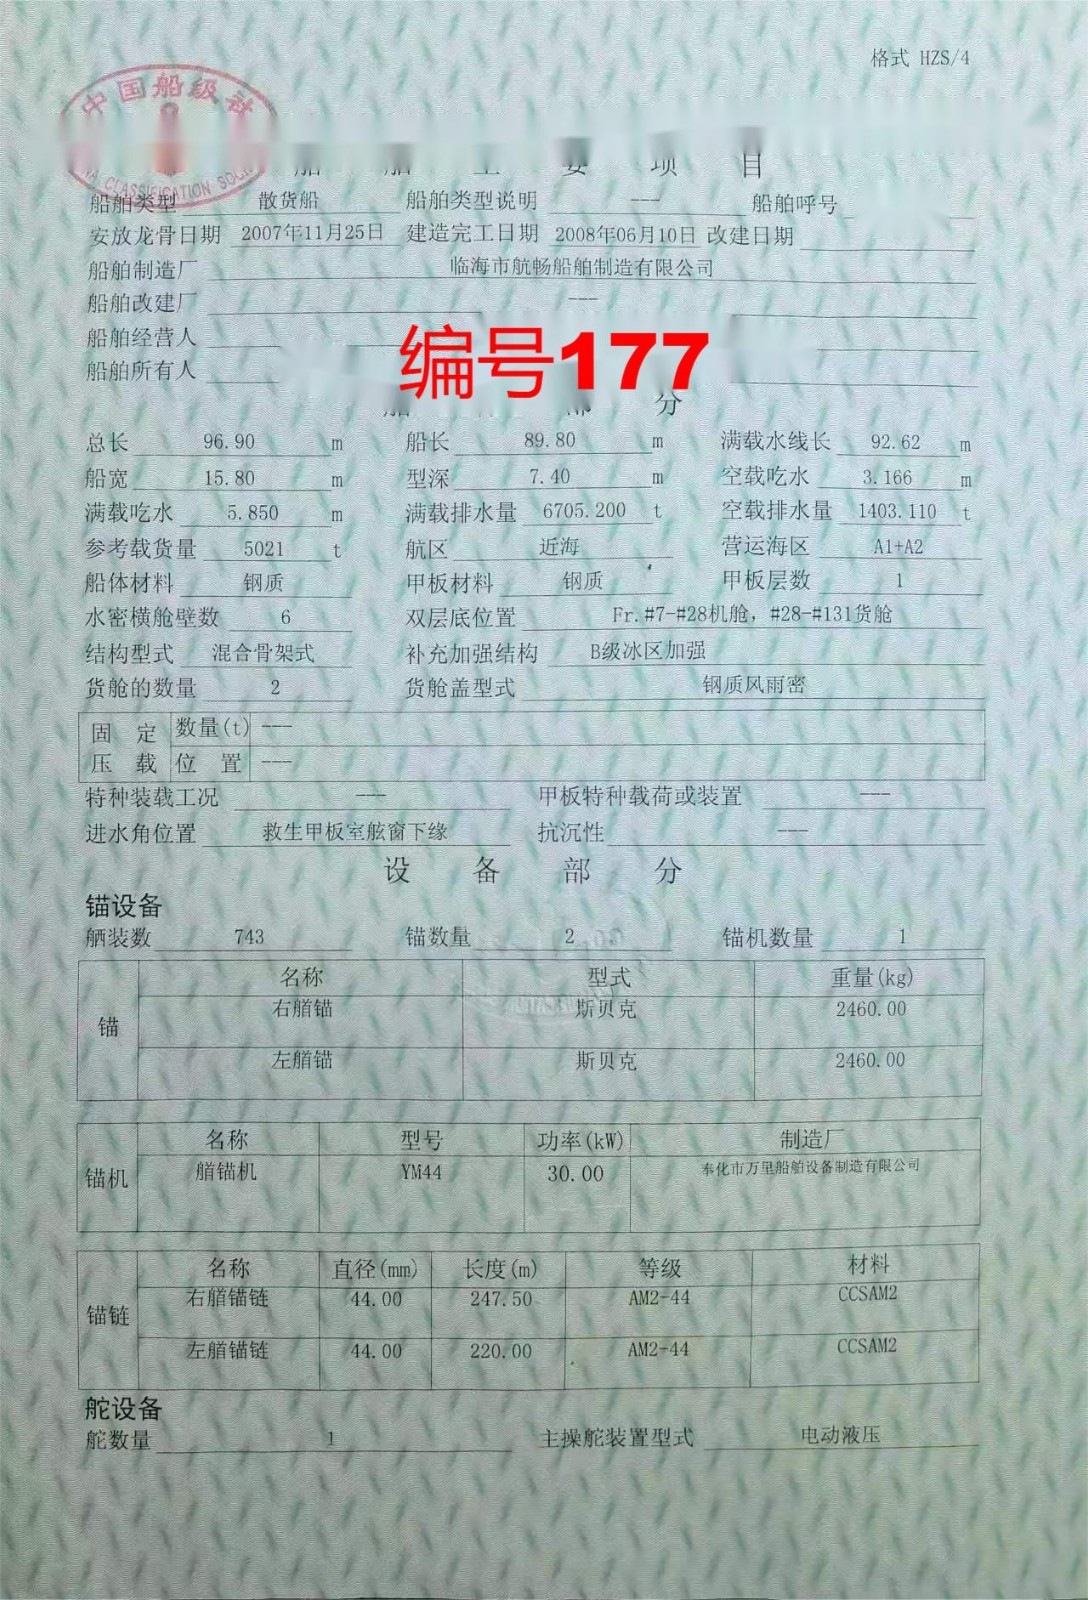 格式 HZS/4
中国船级社
CLASSIFICATION SOCI
船 舶 主 要 项 目
船舶类型 散货船 船舶类型说明 --- 船舶呼号
安放龙骨日期 2007年11月25日 建造完工日期 2008年06月10日 改建日期
船舶制造厂 临海市航畅船舶制造有限公司
船舶改建厂 ---
船舶经营人
编号177
船舶所有人
船 部 分
总长 96.90 m 船长 89.80 m 满载水线长 92.62 m
船宽 15.80 m 型深 7.40 m 空载吃水 3.166 m
满载吃水 5.850 m 满载排水量 6705.200 t 空载排水量 1403.110 t
参考载货量 5021 t 航区 近海 营运海区 A1+A2
船体材料 钢质 甲板材料 钢质 甲板层数 1
水密横舱壁数 6 双层底位置 Fr.#7-#28机舱，#28-#131货舱
结构型式 混合骨架式 补充加强结构 B级冰区加强
货舱的数量 2 货舱盖型式 钢质风雨密
固 定 数量(t) ---
压 载 位 置 ---
特种装载工况 --- 甲板特种载荷或装置 ---
进水角位置 救生甲板室舷窗下缘 抗沉性 ---
设 备 部 分
锚设备
舾装数 743 锚数量 2 锚机数量 1
名称 型式 重量(kg)
锚 右艏锚 斯贝克 2460.00
左艏锚 斯贝克 2460.00
名称 型号 功率(kW) 制造厂
锚机 艏锚机 YM44 30.00 奉化市万里船舶设备制造有限公司
名称 直径(mm) 长度(m) 等级 材料
锚链 右艏锚链 44.00 247.50 AM2-44 CCSAM2
左艏锚链 44.00 220.00 AM2-44 CCSAM2
舵设备
舵数量 1 主操舵装置型式 电动液压